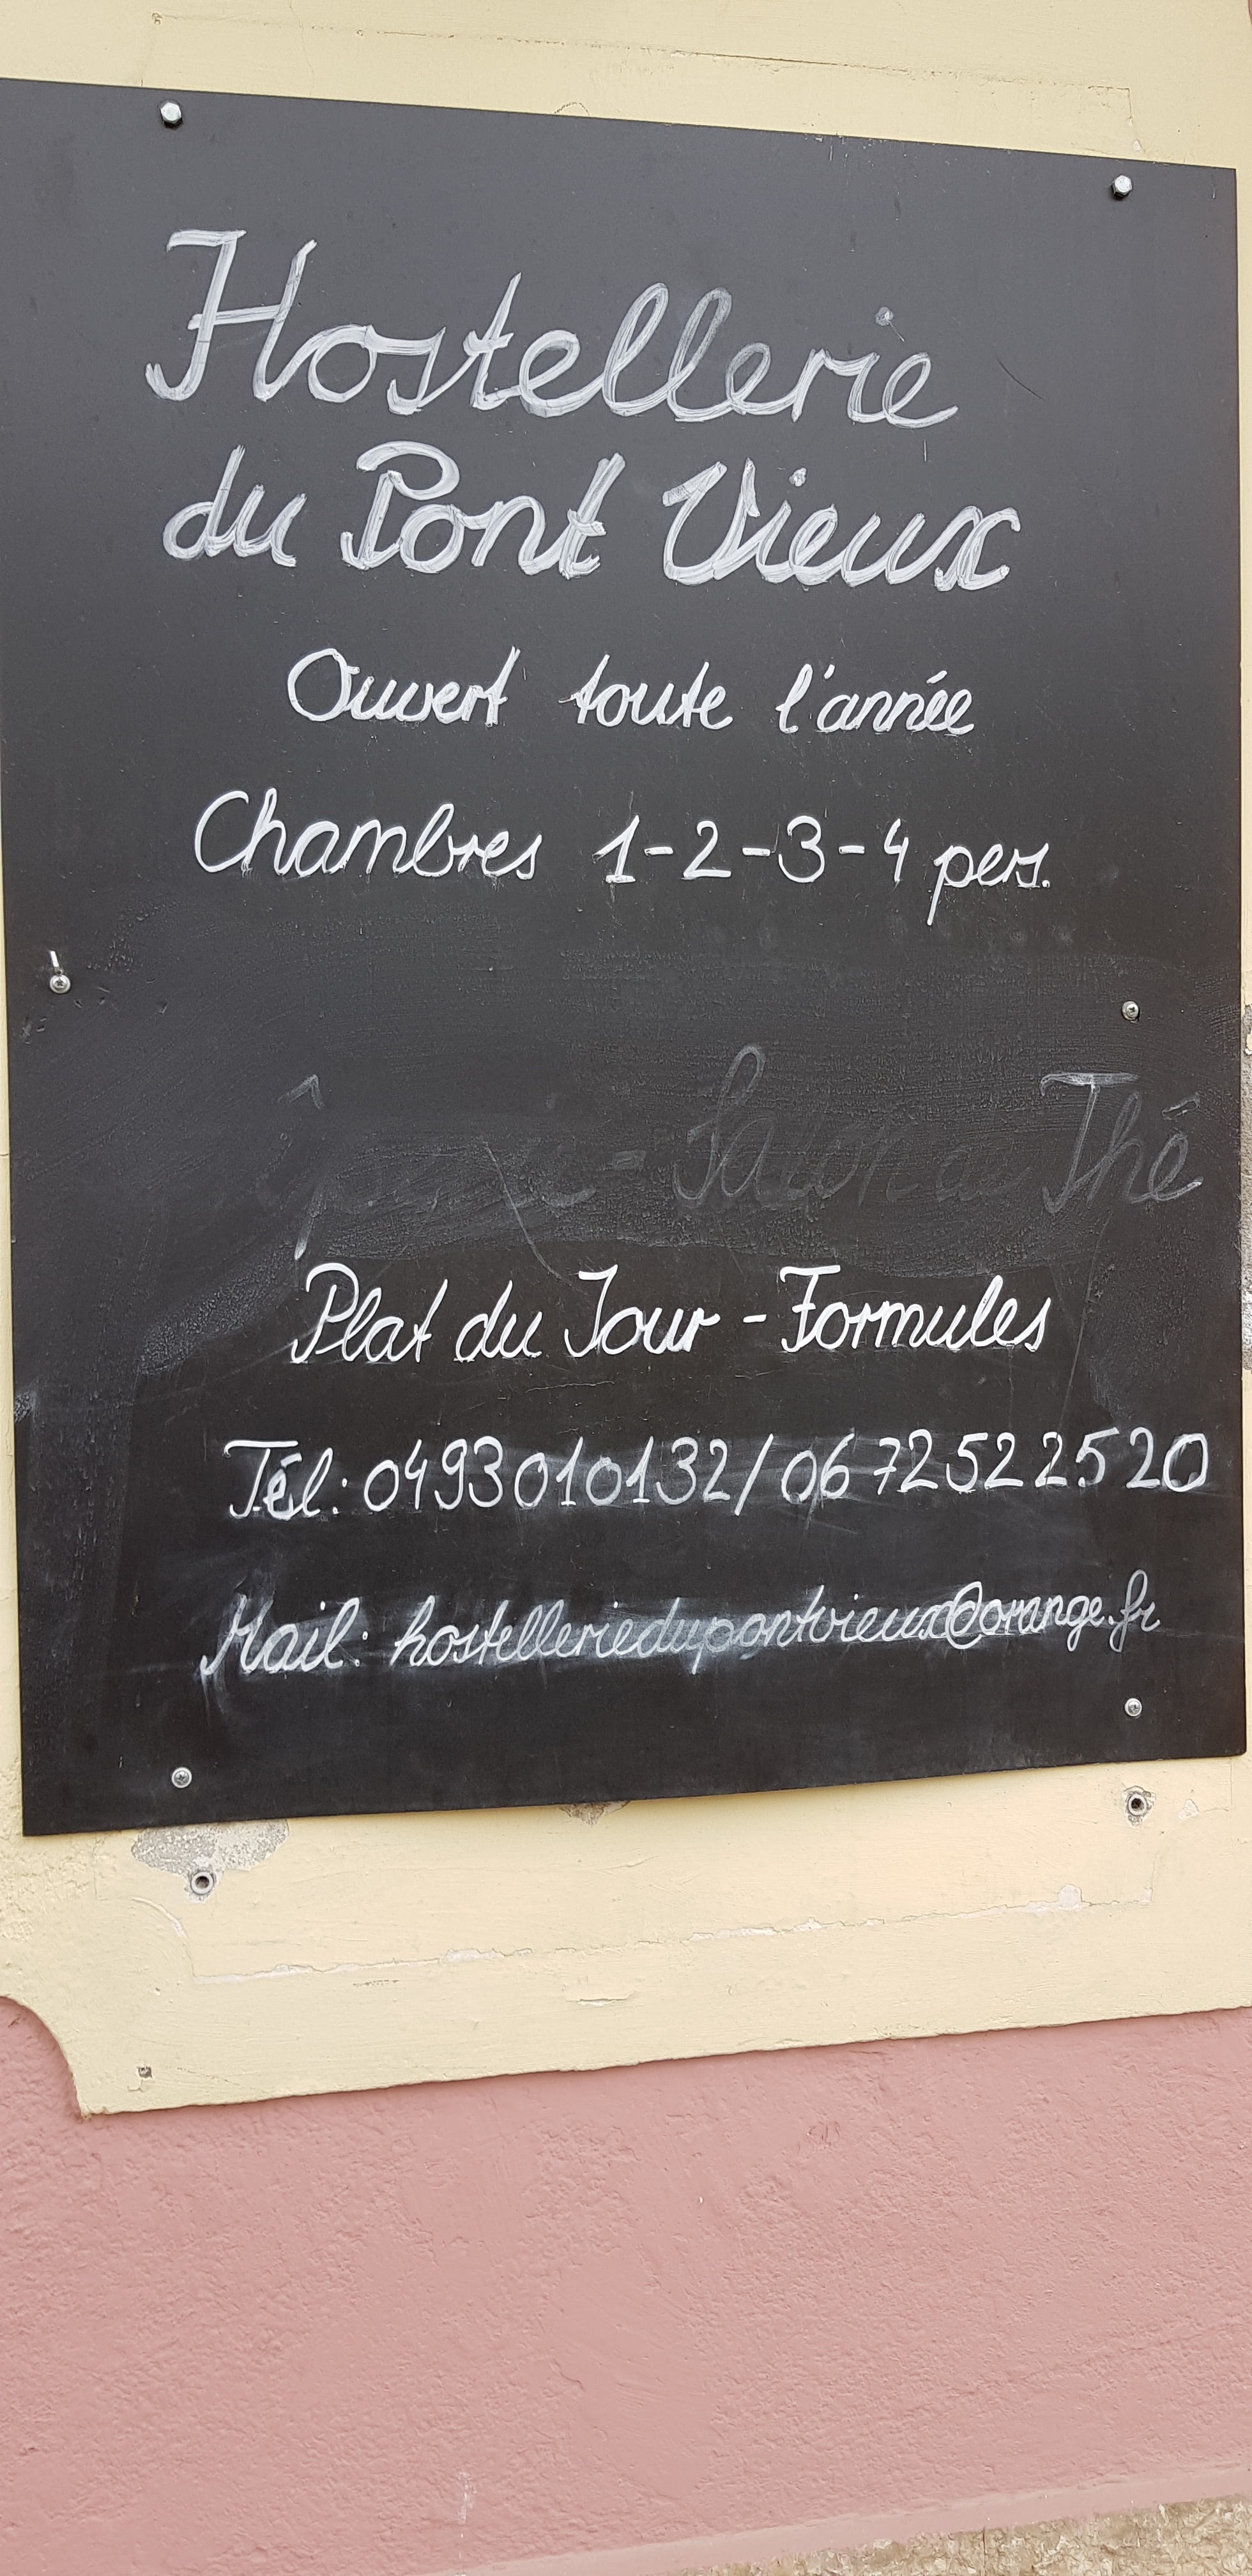 Hostellerie
du Pont Vieux
Ouvert toute l'année
Chambres 1-2-3-4 pers.
- Salon de Thé
Plat du Jour - Formules
Tél: 0493010132/ 06 72 52 25 20
Mail: hostelleriedupontvieux@orange.fr